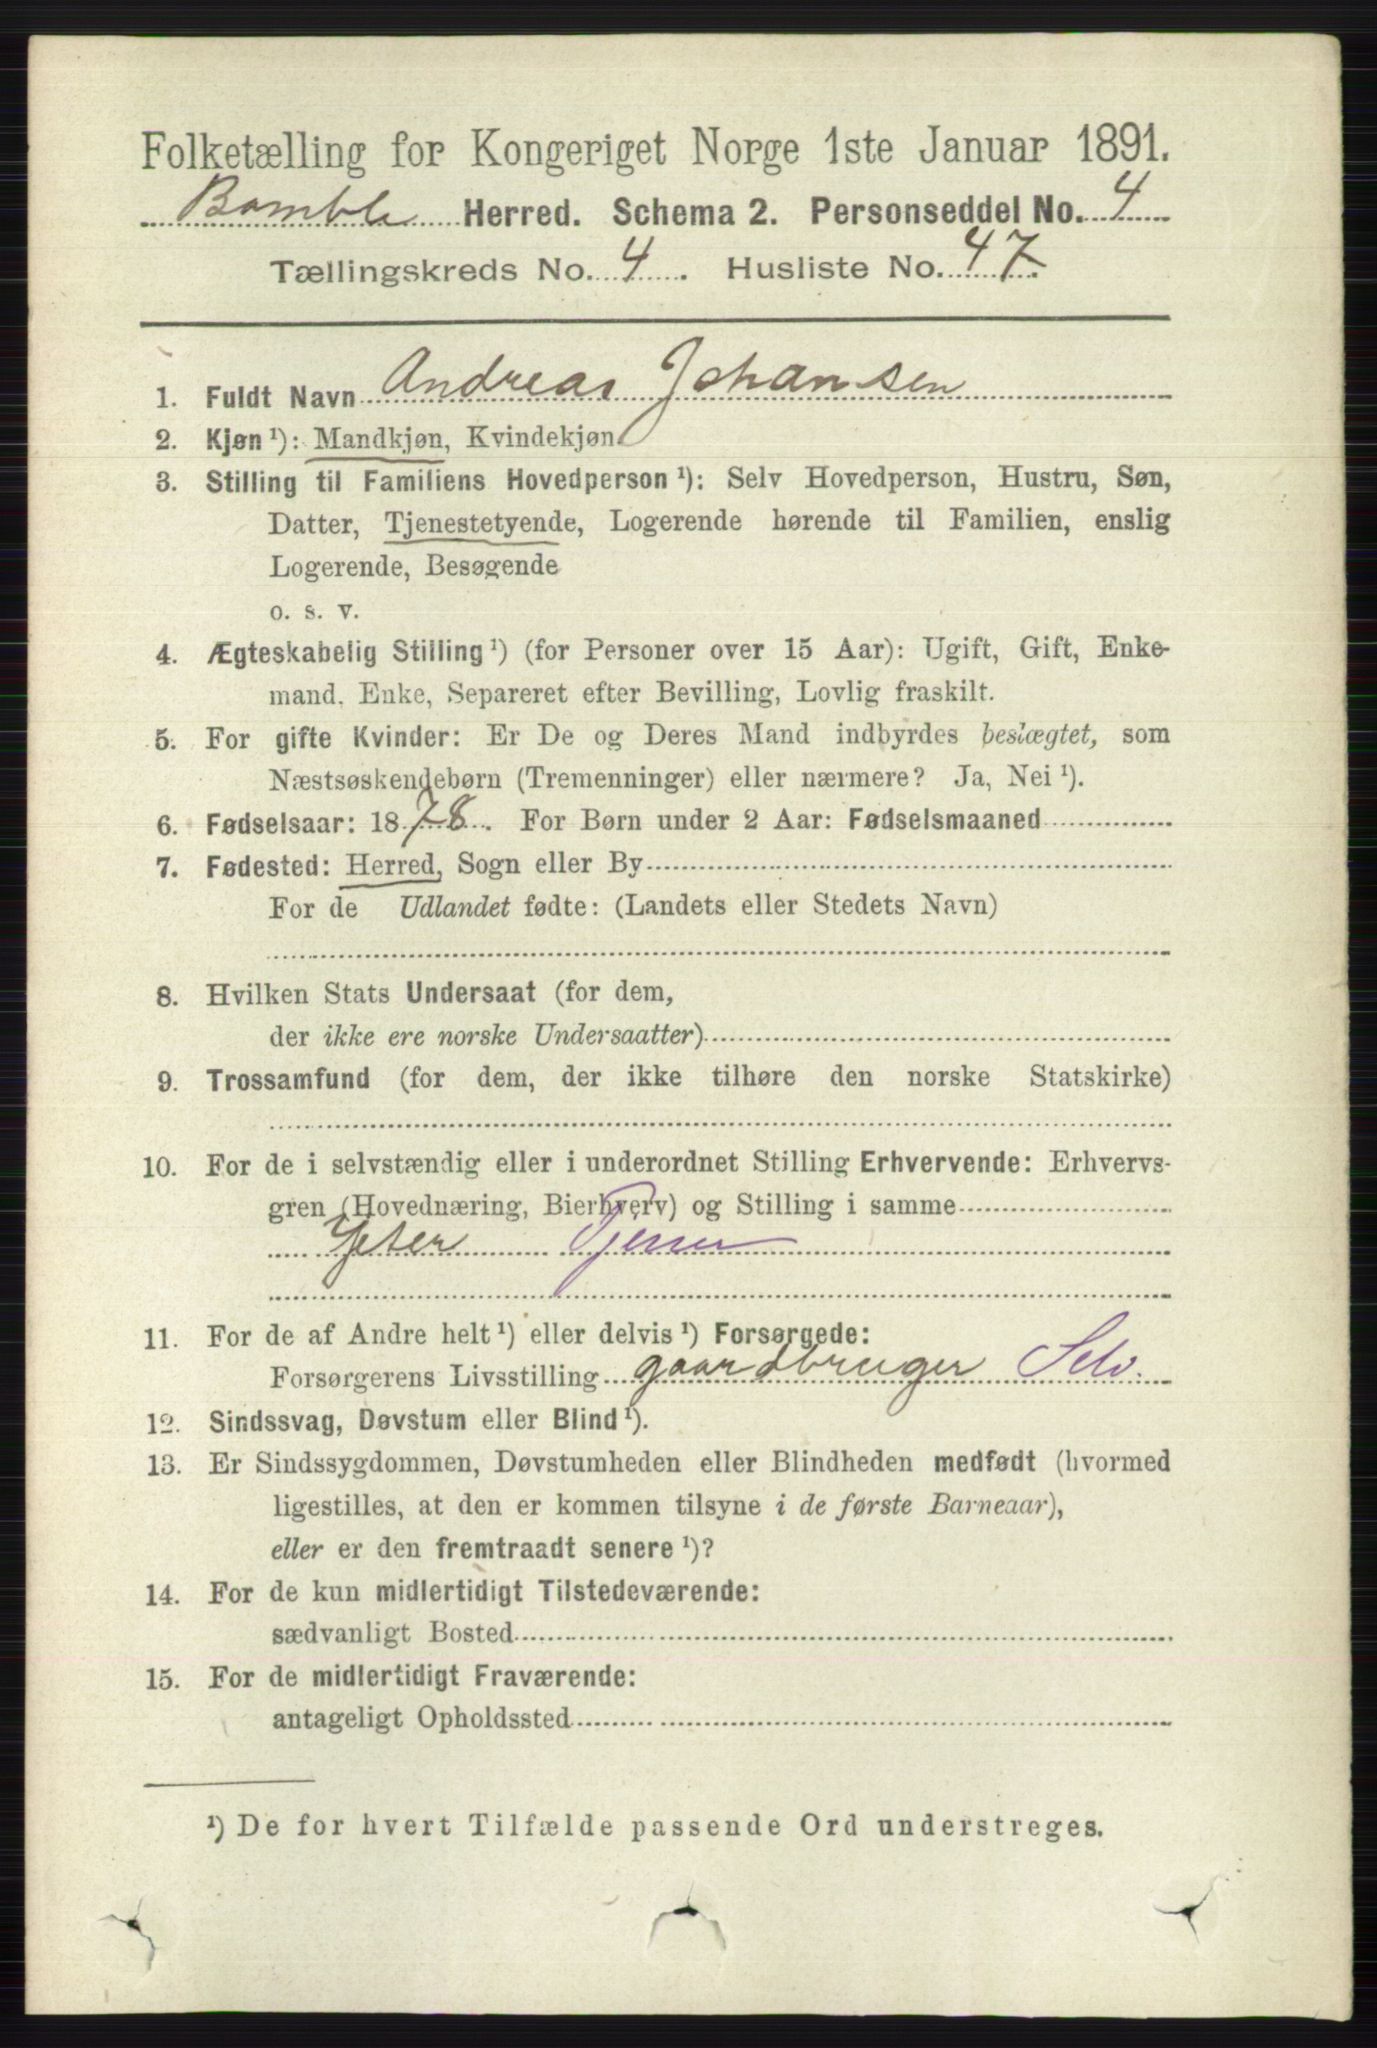 Folketælling for Kongeriget Norge 1ste Januar 1891.
Bamble Herred. Schema 2. Personseddel No. 4
Tællingskreds No. 4. Husliste No. 47.
1. Fuldt Navn Andreas Johansen
2. Kjøn ¹): Mandkjøn, Kvindekjøn.
3. Stilling til Familiens Hovedperson ¹): Selv Hovedperson, Hustru, Søn,
Datter, Tjenestetyende, Logerende hørende til Familien, enslig
Logerende, Besøgende
o. s. v.
4. Ægteskabelig Stilling ¹) (for Personer over 15 Aar): Ugift, Gift, Enke-
mand, Enke, Separeret efter Bevilling, Lovlig fraskilt.
5. For gifte Kvinder: Er De og Deres Mand indbyrdes beslægtet, som
Næstsøskendebørn (Tremenninger) eller nærmere? Ja, Nei ¹).
6. Fødselsaar: 1878. For Børn under 2 Aar: Fødselsmaaned
7. Fødested: Herred, Sogn eller By
For de Udlandet fødte: (Landets eller Stedets Navn)
8. Hvilken Stats Undersaat (for dem,
der ikke ere norske Undersaatter)
9. Trossamfund (for dem, der ikke tilhøre den norske Statskirke)
10. For de i selvstændig eller i underordnet Stilling Erhvervende: Erhvervs-
gren (Hovednæring, Bierhverv) og Stilling i samme
Gjeter Tjener
11. For de af Andre helt ¹) eller delvis ¹) Forsørgede:
Forsørgerens Livsstilling gaardbruger Selv.
12. Sindssvag, Døvstum eller Blind ¹).
13. Er Sindssygdommen, Døvstumheden eller Blindheden medfødt (hvormed
ligestilles, at den er kommen tilsyne i de første Barneaar),
eller er den fremtraadt senere ¹)?
14. For de kun midlertidigt Tilstedeværende:
sædvanligt Bosted
15. For de midlertidigt Fraværende:
antageligt Opholdssted
¹) De for hvert Tilfælde passende Ord understreges.